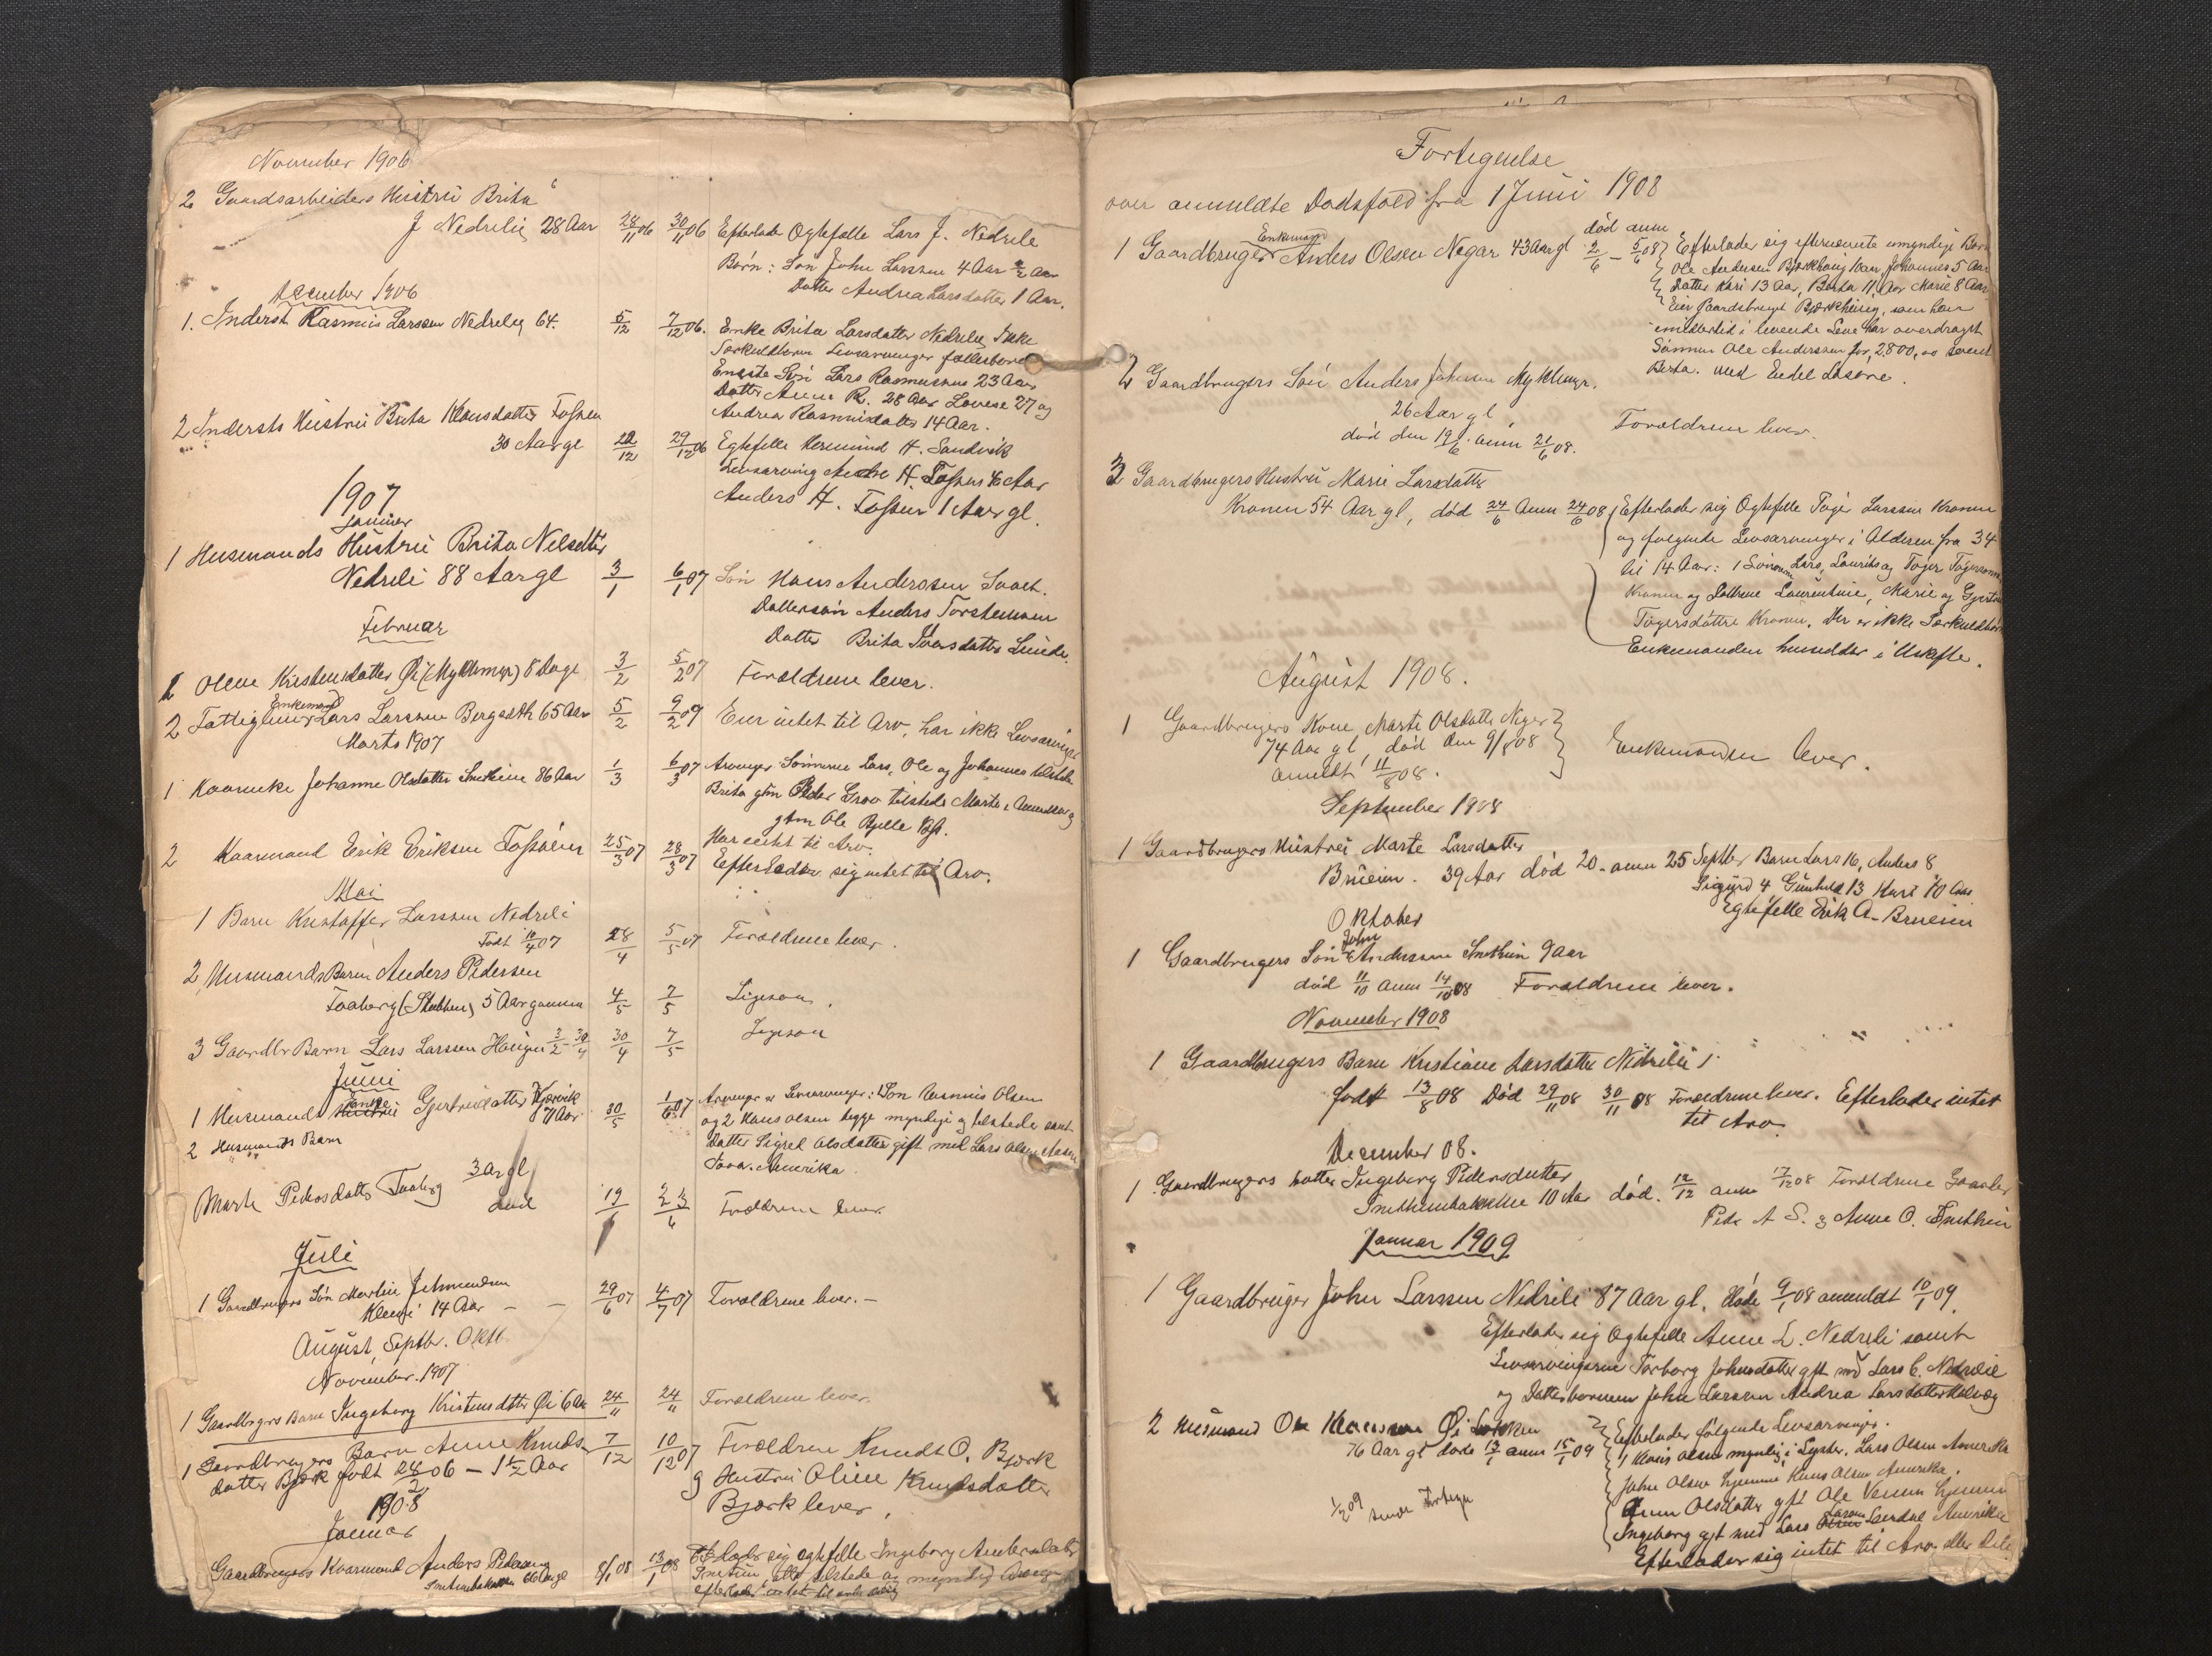 November 1906
2 Gaardsarbeiders Hustru Brita
J Nedrelie 28 Aar 28/11 06 30/11 06 Efterlader Ægtefælle Lars J. Nedrelie
Børn: Søn John Larssen 4 Aar
Datter Andrea Larsdatter 1 Aar.
December 1906
1. Inderst Rasmus Larssen Nedrelie 64. 5/12 7/12 06. Enke Brita Larsdatter Nedrelie, Ikke
Særkuldbørn Livsarvinger fællesbørn
Eneste Søn Lars Rasmussen 23 Aar
Datter Anne R. 28 Aar Lovise 27 og
Andrea Rasmusdatter 14 Aar.
2 Indersts Hustru Brita Klausdatter Fossen
30 Aar gl 22/12 29/12 06 Egtefelle Hermund H. Sandvik
Livsarving H. Fossen 6 Aar
Anders H. Fossen 1 Aar gl.
1907
Januar
1 Husmands Hustru Brita Nelsdtter
Nedreli 88 Aar gl 3/1 6/1 07 Søn Hans Anderssen
Dattersøn Anders Torstensen
Datter Brita Iversdatter Linde.
Februar
1 Oline Kristensdatter Øi (Myklemyr) 8 Dage 3/2 5/2 07 Foreldrene lever.
Enkemand
2 Fattiglem Lars Larssen Bergseth 65 Aar 5/2 9/2 07 Eier intet til Arv, har ikke Livsarvinger
Marts 1907
1 Kaarenke Johanne Olsdatter Snethun 86 Aar 1/3 6/3 07 Arvinger Sønnerne Lars, Ole og Johannes tilstede
Brita gtm Peder Grov tilstede Marte i Amerika og
gtm Ole Bjelle
Har intet til Arv.
2 Kaarmand Erik Eriksen Fossøien 25/3 07 28/3 07 Efterlader sig intet til Arv.
Mai
1 Barn Kristoffer Larssen Nedreli
Født 10/4 07 28/4 5/5 07 Foreldrene lever.
2 Husmands Barn Anders Pedersen
Faaberg (Stubben) 5 Aar gammel 4/5 7/5 Ligesom.
3 Gaardbr Barn Lars Larssen Haugen 3/2 - 30/4 30/4 7/5 Ligesom
Juni
Enke
1 Husmands Hustru Gjertrud datter Kjærvik
87 Aar 30/5 1/6 07 Arvinger er Livsarvinger: 1 Søn Rasmus Olsen
og 2 Hans Olsen begge myndige og tilstede samt
Datter Sigrid Olsdatter gift med Lars Olsen
Amerika
2 Husmands Barn
Marte Pedersdatter Faaberg 3 Ar gl
død 19/6 23/6 Foreldrene lever
Juli
1 Gaardbrugers Søn Martin Johnnesen
14 Aar 29/6 07 4/7 07 Foreldrene lever. -
August, Septbr. Oktb.
November 1907
1 Gaardbrugers Barn Ingeborg Kristensdatter Øi 6 Aar 24/11 24/11 Foreldrene lever.
1 Gaardbrugers Barn Anne Knuds
datter Bjørk født 28/2 06 - 1 1/2 Aar 7/12 10/12 07 Foreldrene Knudt O. Bjørk
og Hustru Oline Knudsdatter
Bjørk lever.
1908
Januar
Gaardbrugers Kaarmand Anders Pedersen
Snethunbakken 66 Aar gl 8/1 08 13/1 08 Efterlader sig egtefelle Ingeborg Andersdatter
Snetun, alle tilstede og myndige Arvinger
efterlader intet til
Fortegnelse
over anmeldte Dødsfald fra 1 Juni 1908
død anm
Enkemand
1 Gaardbruger Anders Olsen Negar 43 Aar gl 2/6 - 5/6 08 Efterlader sig efternevnte umyndige Børn
Ole Andersen Bjørkhaug 16 aar, Johannes 5 Aar
Datter Kari 13 Aar, Berta 11 Aar Marie 8 Aar
Eier Gaardsbruget Bjørkhaug, som han
imidlertid i levende Live har overdraget
Sønnen Ole Anderssen for 2800,00
med Eidel Løsøre.
2 Gaardbrugers Søn Anders Johnsen Myklemyr.
26 Aar gl
død den 19/6. anm 21/6 08. Foreldrene lever.
3 Gaardbrugers Hustru Marie Larsdatter
Kronen 54 Aar gl, død 24/6 Anm 24/6 08 Efterlader sig Ægtefelle Tøger Larssen Kronen
og følgende Livsarvinger i Alderen fra 34
til 14 Aar: Sønnerne Lars, Laurits og Tøger Tøgerssønner
Kronen og Døttrene Laurentine, Marie og Gjertrud
Tøgersdøttre Kronen. Der er ikke Særkuldbørn
Enkemanden hensidder i Uskifte.
August 1908.
1 Gaardbrugers Kone Marte Olsdatter Negar
74 Aar gl, død den 9/8 08
anmeldt 11/8 08. Enkemanden lever.
September 1908
1 Gaardbrugers Hustru Marte Larsdatter
Brueim. 39 Aar død 20. anm 25 Septbr Børn Lars 16, Anders 8
Sigurd 4 Gunhild 13 Kari 10 Aar
Egtefelle Erik A. Brueim
Oktober
John
1 Gaardbrugers Søn Anderssen Snethun 9 aar
død 11/10 anm 14/10 08 Foreldrene lever.
November 1908
1 Gaardbrugers Barn Kristiane Larsdatter Nedrelie
født 13/8 08 Død 29/11 08 30/11 08 Foreldrene lever. Efterlader intet
til Arv.
December 08.
1 Gaardbrugers Datter Ingeborg Pedersdatter
Snethunbakkene 10 Aar død. 12/12 anm 17/12 08 Foreldrene Gaardbr
Peder A S. og Anne O. Snethun
Januar 1909
1 Gaardbruger John Larssen Nedreli 87 Aar gl. døde 9/1 08 anmeldt 10/1 09.
Efterlader sig Ægtefelle Anne L. Nedreli samt
Livsarvingerne Torborg Johnsdatter gft med Lars C. Nedrelie
og Datterbørnene John Larssen Andrea Larsdatter
2 Husmand Ole Øi
76 Aar gl døde 13/1 anm 15/1 09 Efterlader følgende Livsarvinger.
1 Hans Olsen myndig i Lyster. Lars Olsen Amerika
John Olsen hjemme Hans Olsen Amerika.
Anne Olsdatter gft Ole Venum hjemme
Larssen
Ingeborg gft med Lars Olsen Leirdal Amerika
Efterlader sig intet til Arv eller Dele
1/2 09 sendt Fortegn